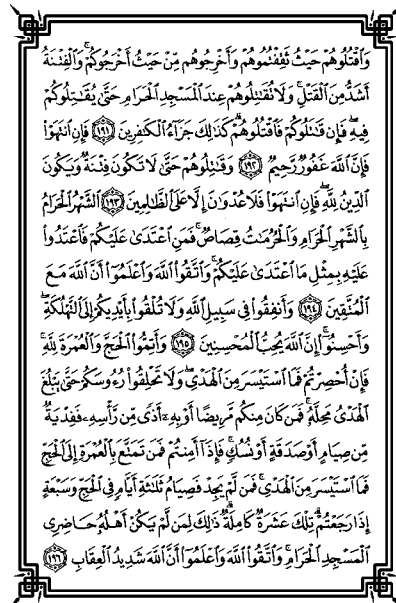 وَٱقْتُلُوهُمْ حَيْثُ ثَقِفْتُمُوهُمْ وَأَخْرِجُوهُم مِّنْ حَيْثُ أَخْرَجُوكُمْ ۚ وَٱلْفِتْنَةُ
أَشَدُّ مِنَ ٱلْقَتْلِ ۚ وَلَا تُقَٰتِلُوهُمْ عِندَ ٱلْمَسْجِدِ ٱلْحَرَامِ حَتَّىٰ يُقَٰتِلُوكُمْ
فِيهِ ۖ فَإِن قَٰتَلُوكُمْ فَٱقْتُلُوهُمْ ۗ كَذَٰلِكَ جَزَآءُ ٱلْكَٰفِرِينَ ﴿١٩١﴾ فَإِنِ ٱنتَهَوْا۟
فَإِنَّ ٱللَّهَ غَفُورٌ رَّحِيمٌ ﴿١٩٢﴾ وَقَٰتِلُوهُمْ حَتَّىٰ لَا تَكُونَ فِتْنَةٌ وَيَكُونَ
ٱلدِّينُ لِلَّهِ ۖ فَإِنِ ٱنتَهَوْا۟ فَلَا عُدْوَٰنَ إِلَّا عَلَى ٱلظَّٰلِمِينَ ﴿١٩٣﴾ ٱلشَّهْرُ ٱلْحَرَامُ
بِٱلشَّهْرِ ٱلْحَرَامِ وَٱلْحُرُمَٰتُ قِصَاصٌ ۚ فَمَنِ ٱعْتَدَىٰ عَلَيْكُمْ فَٱعْتَدُوا۟
عَلَيْهِ بِمِثْلِ مَا ٱعْتَدَىٰ عَلَيْكُمْ ۚ وَٱتَّقُوا۟ ٱللَّهَ وَٱعْلَمُوٓا۟ أَنَّ ٱللَّهَ مَعَ
ٱلْمُتَّقِينَ ﴿١٩٤﴾ وَأَنفِقُوا۟ فِى سَبِيلِ ٱللَّهِ وَلَا تُلْقُوا۟ بِأَيْدِيكُمْ إِلَى ٱلتَّهْلُكَةِ ۛ
وَأَحْسِنُوٓا۟ ۛ إِنَّ ٱللَّهَ يُحِبُّ ٱلْمُحْسِنِينَ ﴿١٩٥﴾ وَأَتِمُّوا۟ ٱلْحَجَّ وَٱلْعُمْرَةَ لِلَّهِ ۚ
فَإِنْ أُحْصِرْتُمْ فَمَا ٱسْتَيْسَرَ مِنَ ٱلْهَدْىِ ۖ وَلَا تَحْلِقُوا۟ رُءُوسَكُمْ حَتَّىٰ يَبْلُغَ
ٱلْهَدْىُ مَحِلَّهُۥ ۚ فَمَن كَانَ مِنكُم مَّرِيضًا أَوْ بِهِۦٓ أَذًى مِّن رَّأْسِهِۦ فَفِدْيَةٌ
مِّن صِيَامٍ أَوْ صَدَقَةٍ أَوْ نُسُكٍ ۚ فَإِذَآ أَمِنتُمْ فَمَن تَمَتَّعَ بِٱلْعُمْرَةِ إِلَى ٱلْحَجِّ
فَمَا ٱسْتَيْسَرَ مِنَ ٱلْهَدْىِ ۚ فَمَن لَّمْ يَجِدْ فَصِيَامُ ثَلَٰثَةِ أَيَّامٍ فِى ٱلْحَجِّ وَسَبْعَةٍ
إِذَا رَجَعْتُمْ ۗ تِلْكَ عَشَرَةٌ كَامِلَةٌ ۗ ذَٰلِكَ لِمَن لَّمْ يَكُنْ أَهْلُهُۥ حَاضِرِى
ٱلْمَسْجِدِ ٱلْحَرَامِ ۚ وَٱتَّقُوا۟ ٱللَّهَ وَٱعْلَمُوٓا۟ أَنَّ ٱللَّهَ شَدِيدُ ٱلْعِقَابِ ﴿١٩٦﴾